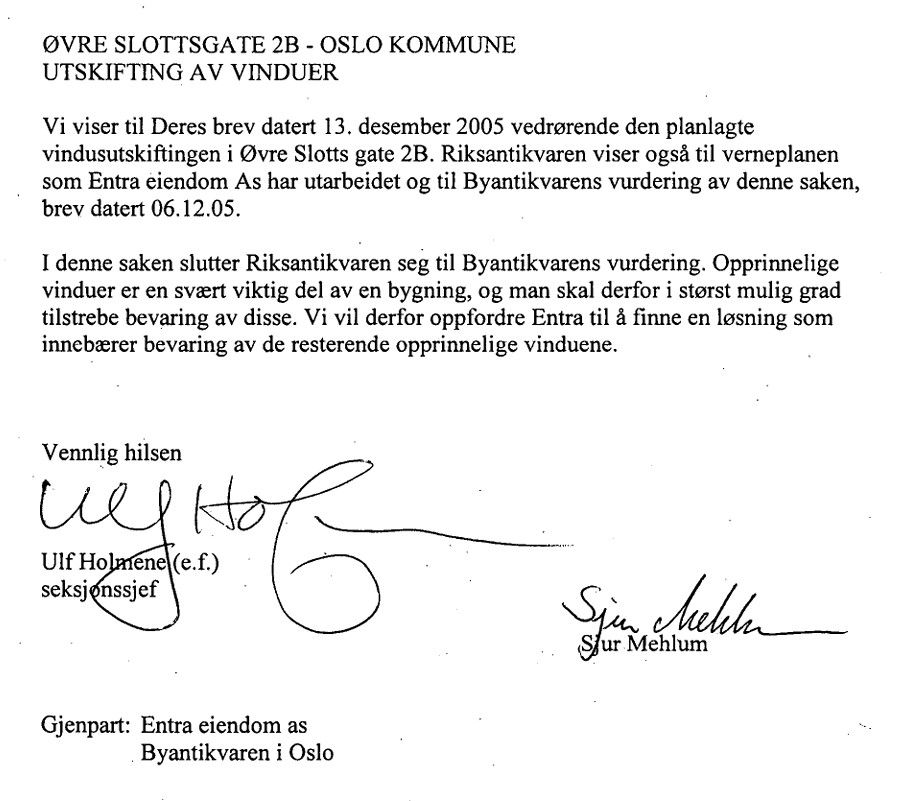 ØVRE SLOTTSGATE 2B - OSLO KOMMUNE
UTSKIFTING AV VINDUER
Vi viser til Deres brev datert 13. desember 2005 vedrørende den planlagte
vindusutskiftingen i Øvre Slotts gate 2B. Riksantikvaren viser også til verneplanen
som Entra eiendom As har utarbeidet og til Byantikvarens vurdering av denne saken,
brev datert 06.12.05.
I denne saken slutter Riksantikvaren seg til Byantikvarens vurdering. Opprinnelige
vinduer er en svært viktig del av en bygning, og man skal derfor i størst mulig grad
tilstrebe bevaring av disse. Vi vil derfor oppfordre Entra til å finne en løsning som
innebærer bevaring av de resterende opprinnelige vinduene.
Vennlig hilsen
Ulf Hol
Ulf Holmene (e.f.)
seksjonssjef
Sjur Mehlum
Sjur Mehlum
Gjenpart: Entra eiendom as
Byantikvaren i Oslo